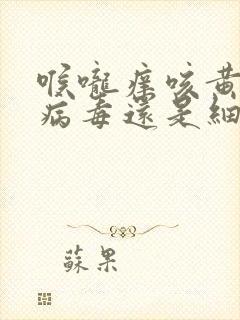 喉嚨痒咳黄
病毒還是細
蘇果